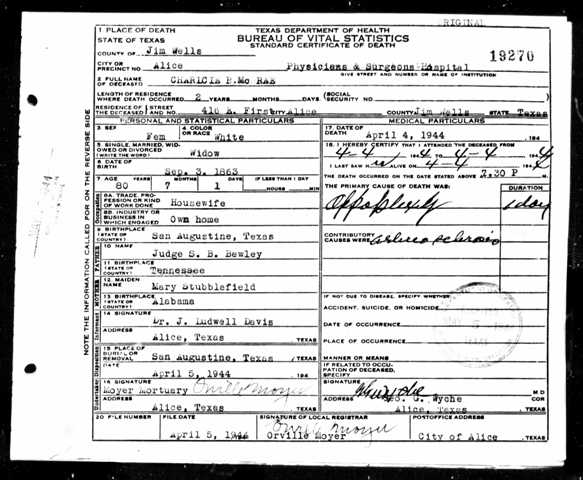 RIGINAL
1 PLACE OF DEATH
STATE OF TEXAS
TEXAS DEPARTMENT OF HEALTH
BUREAU OF VITAL STATISTICS
STANDARD CERTIFICATE OF DEATH
COUNTY OF Jim Wells
19270
CITY OR PRECINCT NO. Alice Physicians & Surgeons Hospital
GIVE STREET AND NUMBER OR NAME OF INSTITUTION
2 FULL NAME OF DECEASED CHARICIA B.Mc RAE
LENGTH OF RESIDENCE WHERE DEATH OCCURRED 2 YEARS MONTHS DAYS SOCIAL SECURITY NO.
RESIDENCE OF THE DECEASED STREET AND NO. 410 E. First CITY Alice COUNTY Jim Wells STATE Texas
PERSONAL AND STATISTICAL PARTICULARS
3 SEX Fem
4 COLOR OR RACE White
5 SINGLE, MARRIED, WIDOWED OR DIVORCED (WRITE THE WORD) Widow
6 DATE OF BIRTH Sep. 3, 1863
7 AGE YEARS 80 MONTHS 7 DAYS 1 IF LESS THAN 1 DAY HOURS MIN
8A. TRADE, PROFESSION OR KIND OF WORK DONE Housewife
8B. INDUSTRY OR BUSINESS IN WHICH ENGAGED Own home
9 BIRTHPLACE (STATE OR COUNTRY) San Augustine, Texas
10 NAME Judge S. B. Bewley
11 BIRTHPLACE (STATE OR COUNTRY) Tennessee
12. MAIDEN NAME Mary Stubblefield
13 BIRTHPLACE (STATE OR COUNTRY) Alabama
14 SIGNATURE Dr. J. Ludwell Davis
ADDRESS Alice, Texas TEXAS
15 PLACE OF BURIAL OR REMOVAL San Augustine, Texas TEXAS
DATE April 5, 1944 194
16 SIGNATURE Moyer Mortuary Orville Moyer
ADDRESS Alice, Texas TEXAS
MEDICAL PARTICULARS
17 DATE OF DEATH April 4, 1944 194
18. I HEREBY CERTIFY THAT I ATTENDED THE DECEASED FROM
4-4 1944 TO 4-4 1944
I LAST SAW H ALIVE ON 4-4 194
THE DEATH OCCURRED ON THE DATE STATED ABOVE AT 7.30 P M.
THE PRIMARY CAUSE OF DEATH WAS: DURATION
Appoplexy 1 day
CONTRIBUTORY CAUSES WERE
IF NOT DUE TO DISEASE, SPECIFY WHETHER
ACCIDENT, SUICIDE, OR HOMICIDE
DATE OF OCCURRENCE
PLACE OF OCCURRENCE
MANNER OR MEANS
IF RELATED TO OCCUPATION OF DECEASED, SPECIFY
SIGNATURE Wyche M D
S. G. Wyche COR
ADDRESS Alice, Texas TEXAS
20 FILE NUMBER
FILE DATE April 5, 1944
SIGNATURE OF LOCAL REGISTRAR Orville Moyer
Orville Moyer
POSTOFFICE ADDRESS City of Alice, TEXAS
NOTE THE INFORMATION CALLED FOR ON THE REVERSE SIDE
Occupation
FATHER
MOTHER
Informant